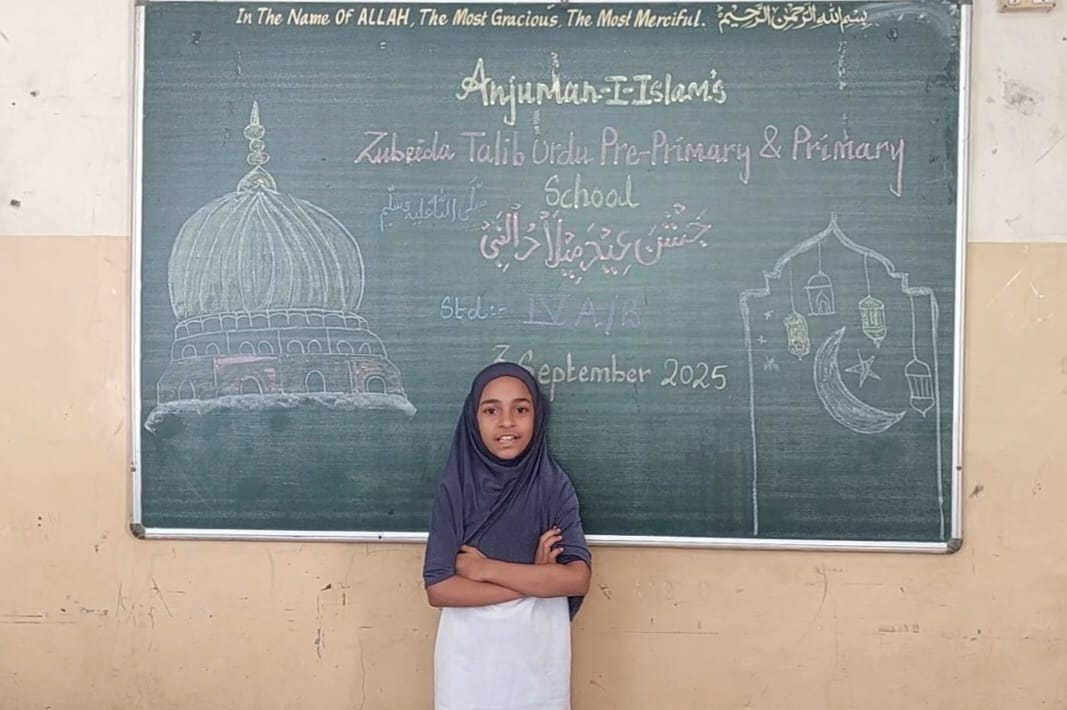 In The Name Of ALLAH, The Most Gracious, The Most Merciful. بِسْمِ اللهِ الرَّحْمٰنِ الرَّحِيْمِ
Anjuman-I-Islam's
Zubeida Talib Urdu Pre-Primary & Primary
School
جَشْنِ عِيدِ مِيْلَادُ النَّبِيْ صَلَّى اللهُ عَلَيْهِ وَسَلَّم
Std:- IV A/B
September 2025